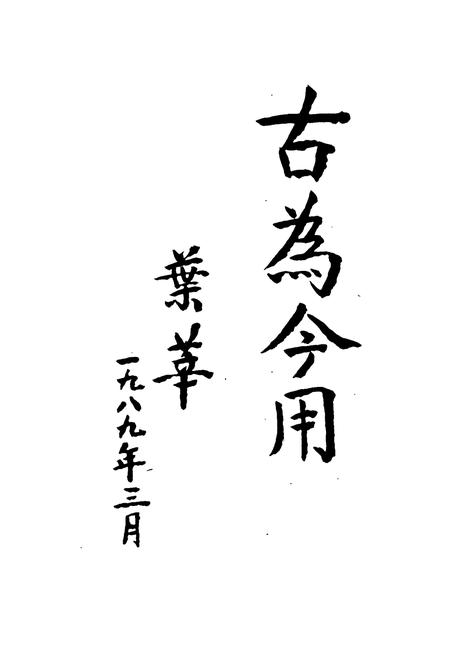 古為今用
葉莘
一九八九年三月